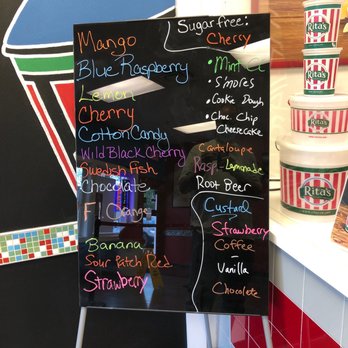 Mango
Blue Raspberry
Lemon
Cherry
Cotton Candy
Wild Black Cherry
Swedish Fish
Chocolate
Fl. Orange
Banana
Sour Patch Red
Strawberry
Sugar free:
Cherry
• Mint
• S'mores
• Cookie Dough
• Choc Chip
Cheesecake
Cantaloupe
Rasp-Lemonade
Root Beer
Custard
Strawberry
Coffee
–
Vanilla
Chocolate
Rita's
Rita's
Rita's
Rita's